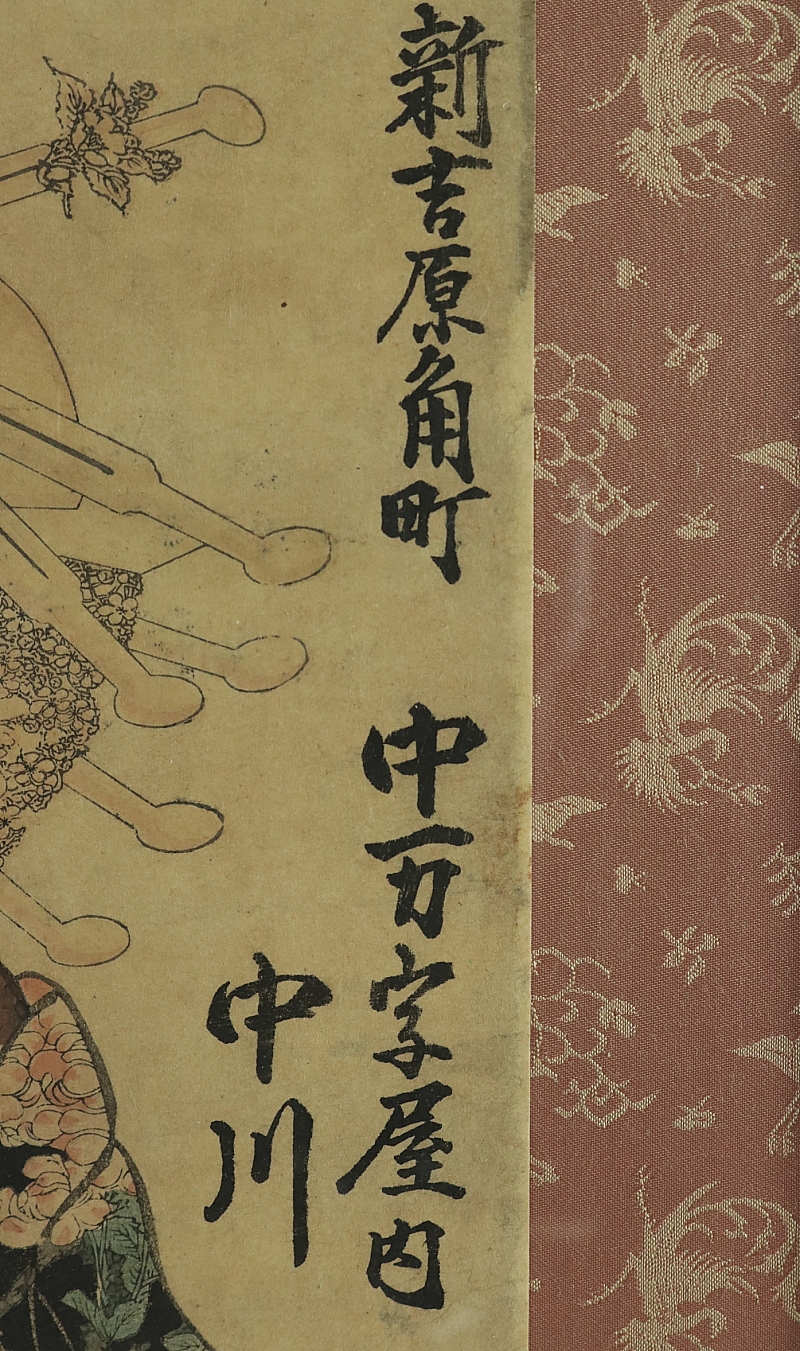 新吉原角町 中万字屋内
中川